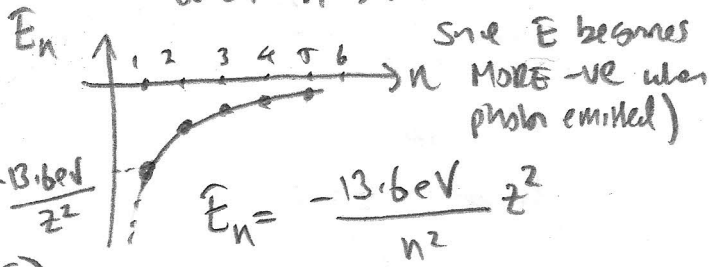 Eₙ
1 2 3 4 5 6
n
since E becomes
MORE -ve when
photon emitted)
-13.6eV
z²
Eₙ = -13.6eV z²
n²